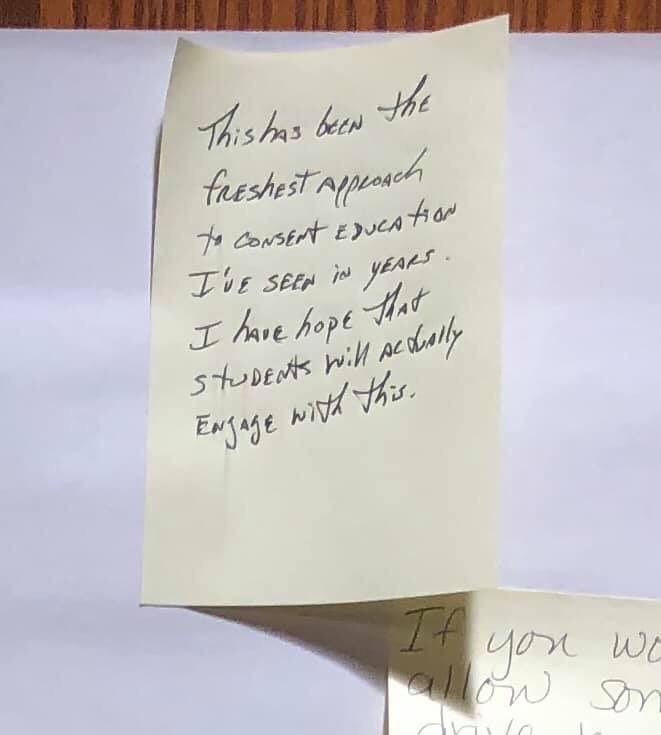 This has been the
freshest approach
to consent education
I've seen in years.
I have hope that
students will actually
engage with this.
If you wo
allow som